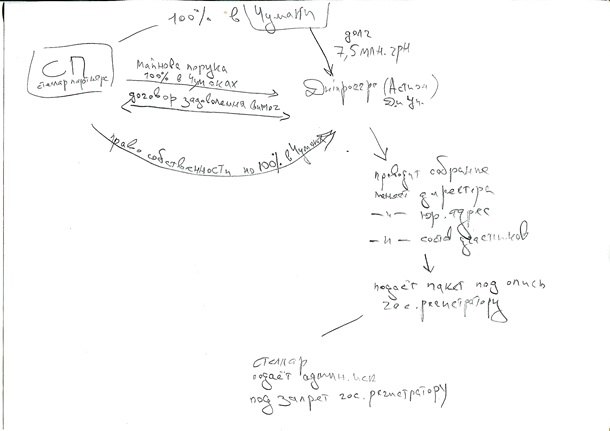 100% в Чумаки
долг
7,5 млн. грн
СП
стамар партнерс
майнова порука
100% в Чумаках
договор задоволення вимог
Дніпроагро (Астион)
право собственности по 100% в Чумаках
проводит собрание
меняет директора
—и— юр. адрес
—и— состав участников
подаёт пакет под опись
гос. регистратору
стамар
подаёт админ. иск
под запрет гос. регистратору